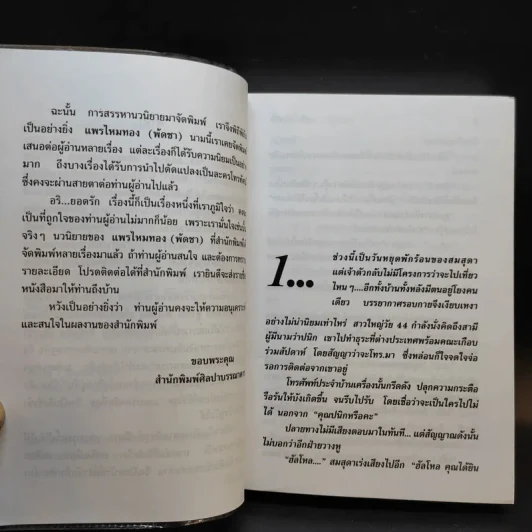 ฉะนั้น การสรรหานวนิยายมาจัดพิมพ์ เราจึงพิถีพิถัน
เป็นอย่างยิ่ง แพรไหมทอง (พัดชา) นามนี้เราเคยจัดพิมพ์
เสนอต่อผู้อ่านหลายเรื่อง แต่ละเรื่องก็ได้รับความนิยมเป็นอย่าง
มาก ถึงบางเรื่องได้รับการนำไปดัดแปลงเป็นละครโทรทัศน์
ซึ่งคงจะผ่านสายตาต่อท่านผู้อ่านไปแล้ว
อริ...ยอดรัก เรื่องนี้ก็เป็นเรื่องหนึ่งที่เราภูมิใจว่า
เป็นที่ถูกใจของท่านผู้อ่านไม่มากก็น้อย เพราะเรามั่นใจเช่นนั้น
จริงๆ นวนิยายของ แพรไหมทอง (พัดชา) ที่สำนักพิมพ์
จัดพิมพ์หลายเรื่องมาแล้ว ถ้าท่านผู้อ่านสนใจ และต้องการทราบ
รายละเอียด โปรดติดต่อได้ที่สำนักพิมพ์ เรายินดีจะส่งรายชื่อ
หนังสือมาให้ท่านถึงบ้าน
หวังเป็นอย่างยิ่งว่า ท่านผู้อ่านคงจะให้ความอนุเคราะห์
และสนใจในผลงานของสำนักพิมพ์
ขอบพระคุณ
สำนักพิมพ์ศิลปาบรรณาคาร
1...
ช่วงนี้เป็นวันหยุดพักร้อนของสมสุดา
แต่เจ้าตัวกลับไม่มีโครงการว่าจะไปเที่ยว
ไหนๆ....อีกทั้งบ้านทั้งหลังมีตนอยู่โยงคน
เดียว บรรยากาศรอบกายจึงเงียบเหงา
อย่างไม่น่านิยมเท่าไหร่ สาวใหญ่วัย 44 กำลังนั่งคิดถึงสามี
ผู้มีนามว่าปนิก เขาไปทำธุระที่ต่างประเทศพร้อมคณะเกือบ
ร่วมสัปดาห์ โดยสัญญาว่าจะโทร.มา ซึ่งหล่อนก็ใจจดใจจ่อ
รอการติดต่อจากเขาอยู่
โทรศัพท์ประจำบ้านเครื่องนั้นกรีดดัง ปลุกความกระตือ
รือร้นให้บังเกิดขึ้น จนรีบไปรับ โดยเชื่อว่าจะเป็นใครไปไม่
ได้ นอกจาก “คุณปนิกหรือคะ”
ปลายทางไม่มีเสียงตอบมาในทันที... แต่สัญญาณดังนั้น
ไม่บอกว่าอีกฝ่ายวางหู
“ฮัลโหล....” สมสุดาเร่งเสียงไปอีก “ฮัลโหล คุณได้ยิน